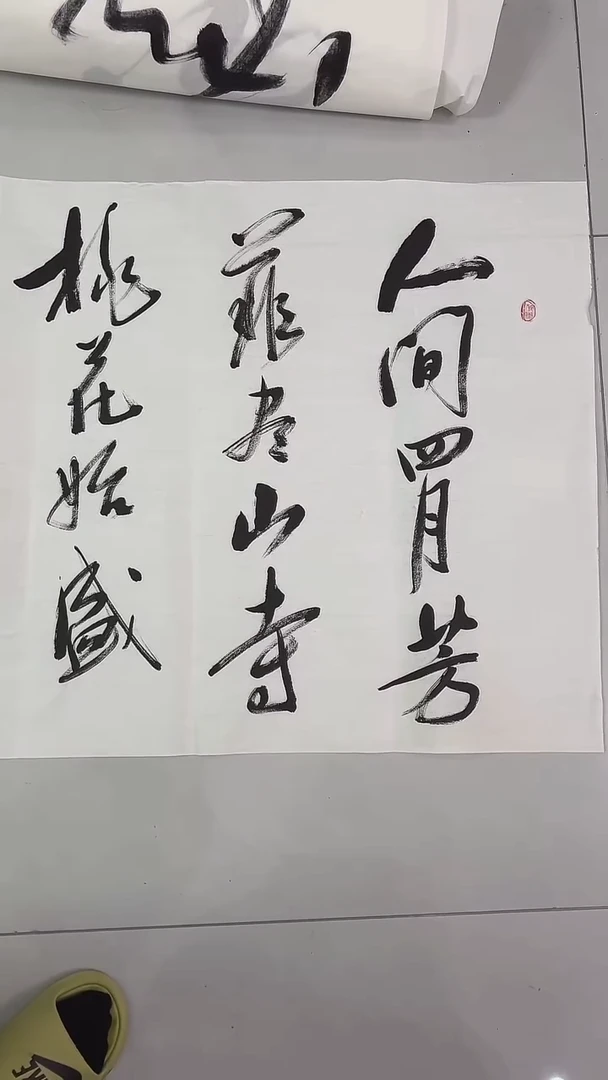 人间四月芳
菲尽山寺
桃花始盛